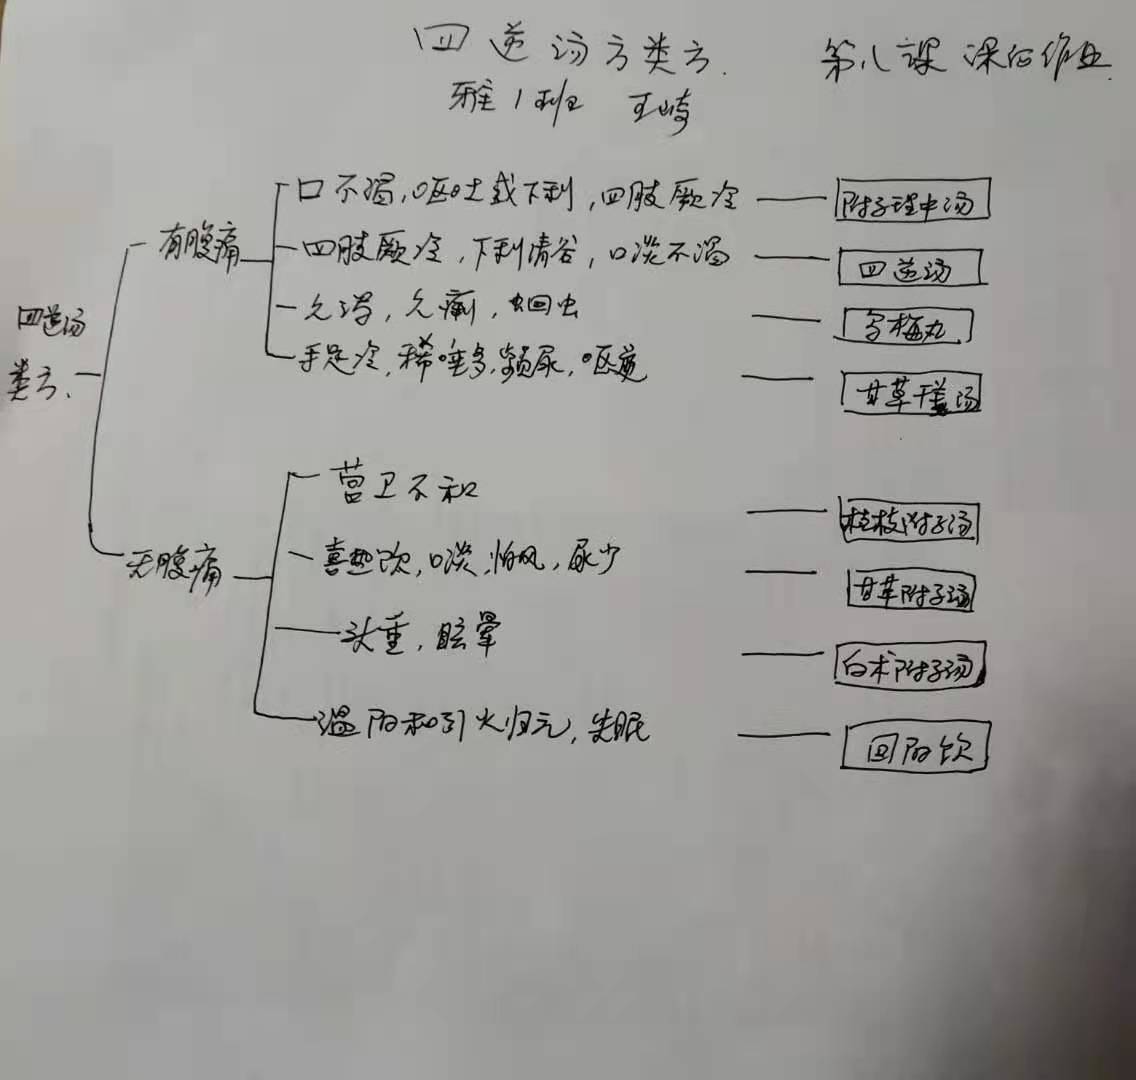 四逆汤方类方. 第八课 课后作业
雅1班 王崎
口不渴,呕吐或下利,四肢厥冷 附子理中汤
有腹痛
四肢厥冷,下利清谷,口淡不渴 四逆汤
四逆汤
类方.
久泻,久痢,蛔虫 乌梅丸
手足冷,稀唾多,频尿,呕逆 甘草干姜汤
营卫不和 桂枝附子汤
无腹痛
喜热饮,口淡,怕风,尿少 甘草附子汤
头重,眩晕 白术附子汤
温阳和引火归元,失眠 回阳饮